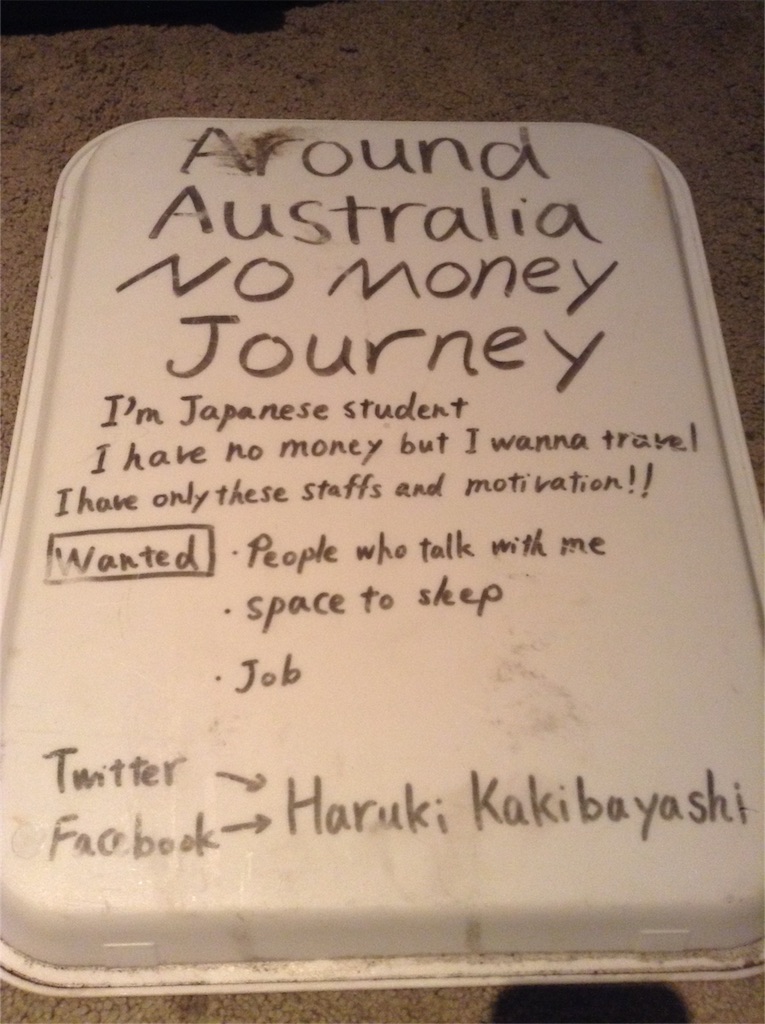 Around
Australia
No Money
Journey
I'm Japanese student
I have no money but I wanna travel
I have only these staffs and motivation!!
Wanted · People who talk with me
· space to sleep
· Job
Twitter →
Facebook → Haruki Kakibayashi